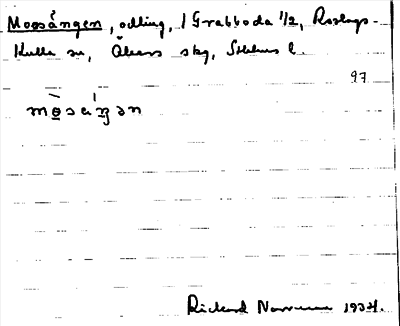 Mossängen, odling, 1 Grabboda 1/2, Roslags-
Kulla sn, Åkers skg, Sthlms l.
97
Rickard 1934.